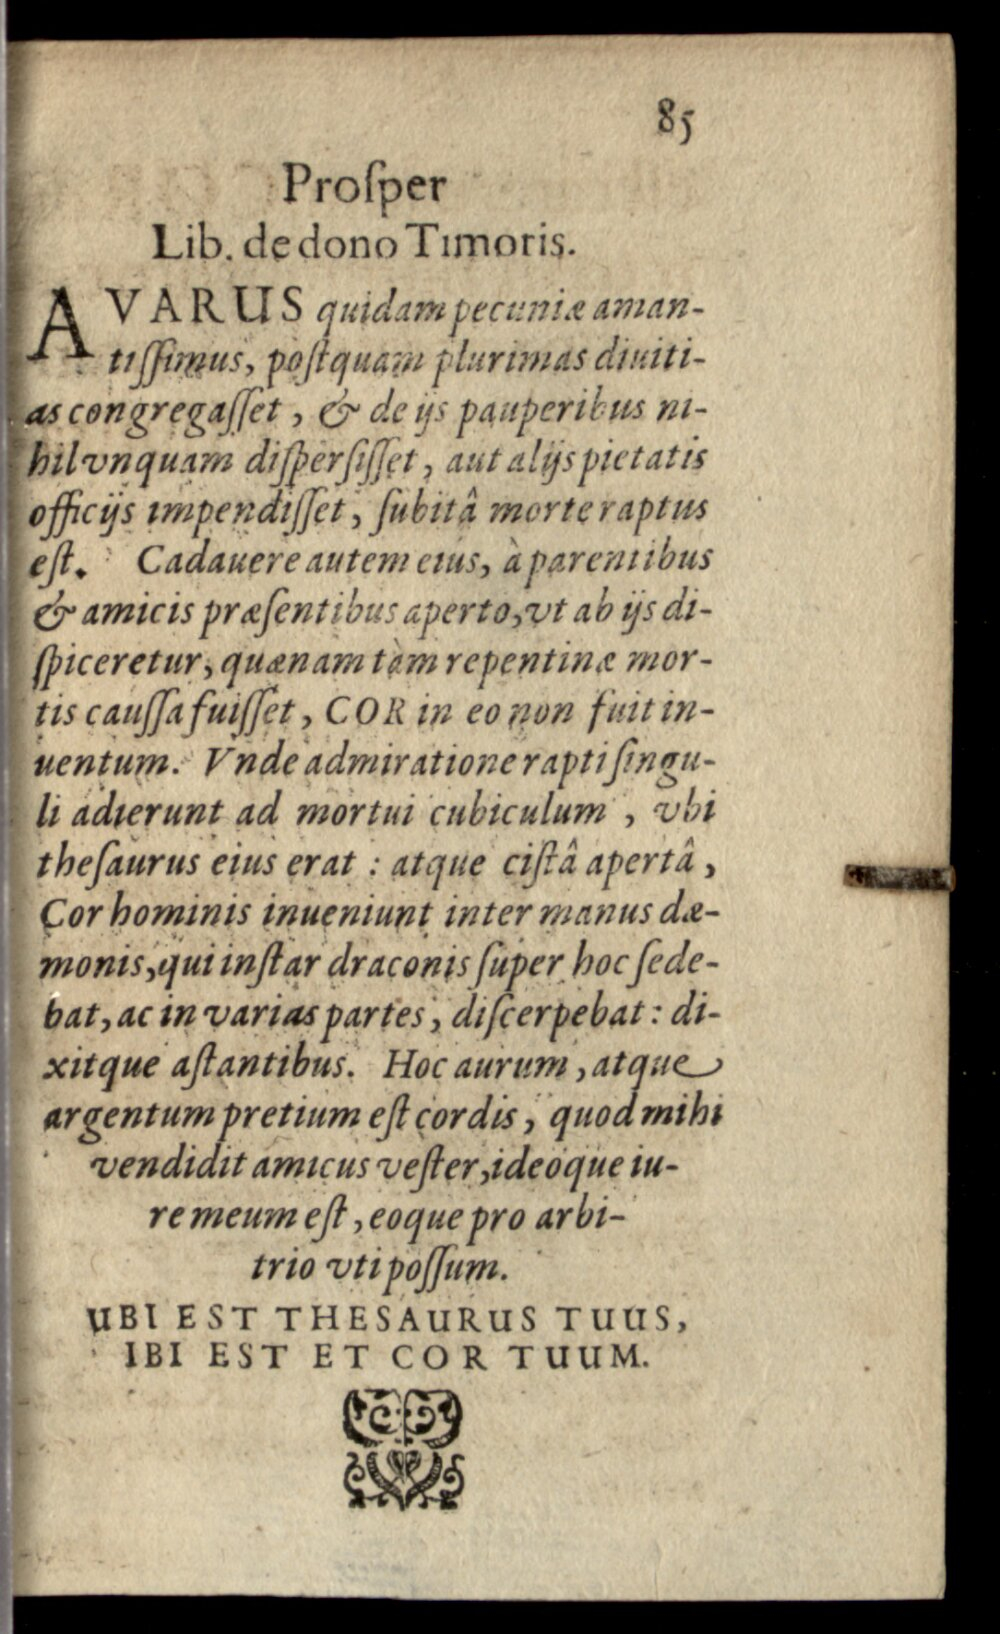 85
Proſper
Lib. de dono Timoris.
AVARUS quidam pecuniæ aman-
tiſſimus, poſtquam plurimas diuiti-
as congregaſſet, & de ijs pauperibus ni-
hil vnquam diſperſiſſet, aut alijs pietatis
officijs impendiſſet, ſubitâ morte raptus
eſt. Cadauere autem eius, à parentibus
& amicis præſentibus aperto, vt ab ijs di-
ſpiceretur, quænam tàm repentinæ mor-
tis cauſſa fuiſſet, COR in eo non fuit in-
uentum. Vnde admiratione rapti ſingu-
li adierunt ad mortui cubiculum, vbi
theſaurus eius erat : atque ciſtâ apertâ,
Cor hominis inueniunt inter manus dæ-
monis, qui inſtar draconis ſuper hoc ſede-
bat, ac in varias partes, diſcerpebat : di-
xitque aſtantibus. Hoc aurum, atque
argentum pretium eſt cordis, quod mihi
vendidit amicus veſter, ideóque iu-
re meum eſt, eoque pro arbi-
trio vti poſſum.
UBI EST THESAURUS TUUS,
IBI EST ET COR TUUM.